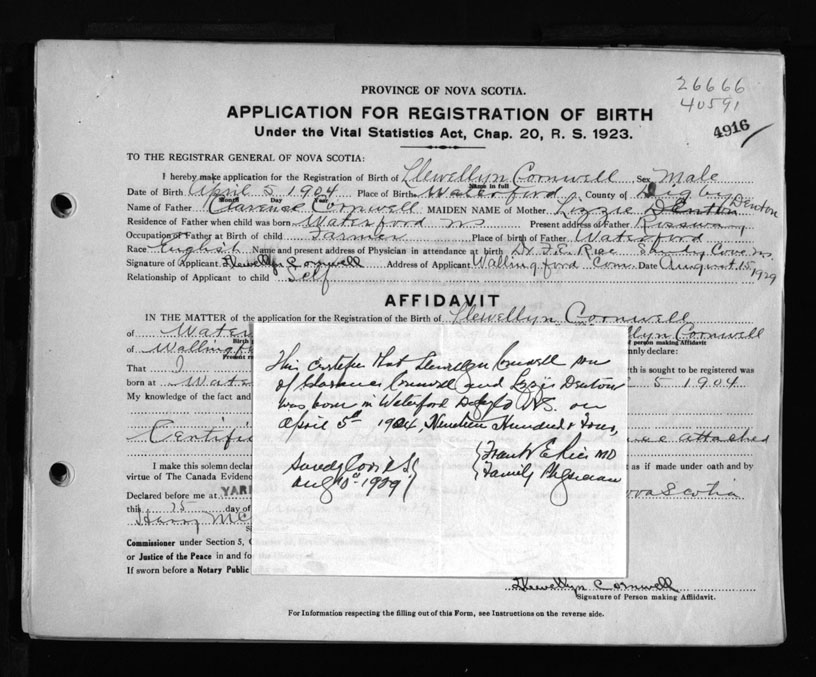 26666
40591
PROVINCE OF NOVA SCOTIA.
4916
APPLICATION FOR REGISTRATION OF BIRTH
Under the Vital Statistics Act, Chap. 20, R. S. 1923.
TO THE REGISTRAR GENERAL OF NOVA SCOTIA:
I hereby make application for the Registration of Birth of Llewellyn Cornwell Sex Male
Name in full
Date of Birth April 5 1904 Place of Birth Waterford County of Digby
Month Day Year
Name of Father Clarence Cornwell MAIDEN NAME of Mother Lizzie Denton Denton
Residence of Father when child was born Waterford NS Present address of Father Rossway
Occupation of Father at Birth of child Farmer Place of birth of Father Waterford
Race English Name and present address of Physician in attendance at birth Dr. F. E. Rice Sandy Cove NS
Signature of Applicant Llewellyn Cornwell Address of Applicant Wallingford Conn. Date August 15 1929
Relationship of Applicant to child Self
AFFIDAVIT
IN THE MATTER of the application for the Registration of the Birth of Llewellyn Cornwell
of Water llyn Cornwell
Birth of person making Affidavit
of Wallingf nly declare:
Present re
That I th is sought to be registered was
born at Wate 5 1904
My knowledge of the fact and
Certific attached
I make this solemn declar t as if made under oath and by
virtue of The Canada Evidenc
Declared before me at YAR ova Scotia
this 15 day of
Harry McC
Commissioner under Section 5, C
or Justice of the Peace in and fo
If sworn before a Notary Public
This certifies that Llewellyn Cornwell son
of Clarence Cornwell and Lizzie Denton
was born in Waterford Digby Co N.S. on
April 5th 1904 Nineteen Hundred & Four,
Sandy Cove N.S. Frank E Rice MD
Aug 10th 1929 Family Physician
Llewellyn Cornwell
Signature of Person making Affidavit.
For Information respecting the filling out of this Form, see Instructions on the reverse side.